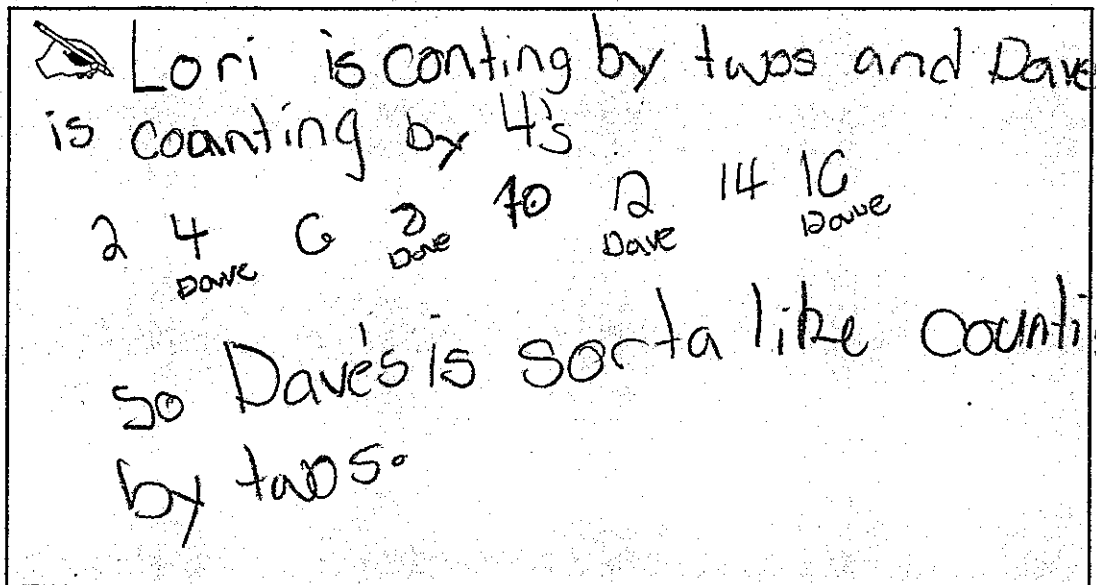 Lori is conting by twos and Dave
is coanting by 4's
2 4 6 8 10 12 14 16
Dave Dave Dave Dave
so Dave's is sorta like counti
by twos.